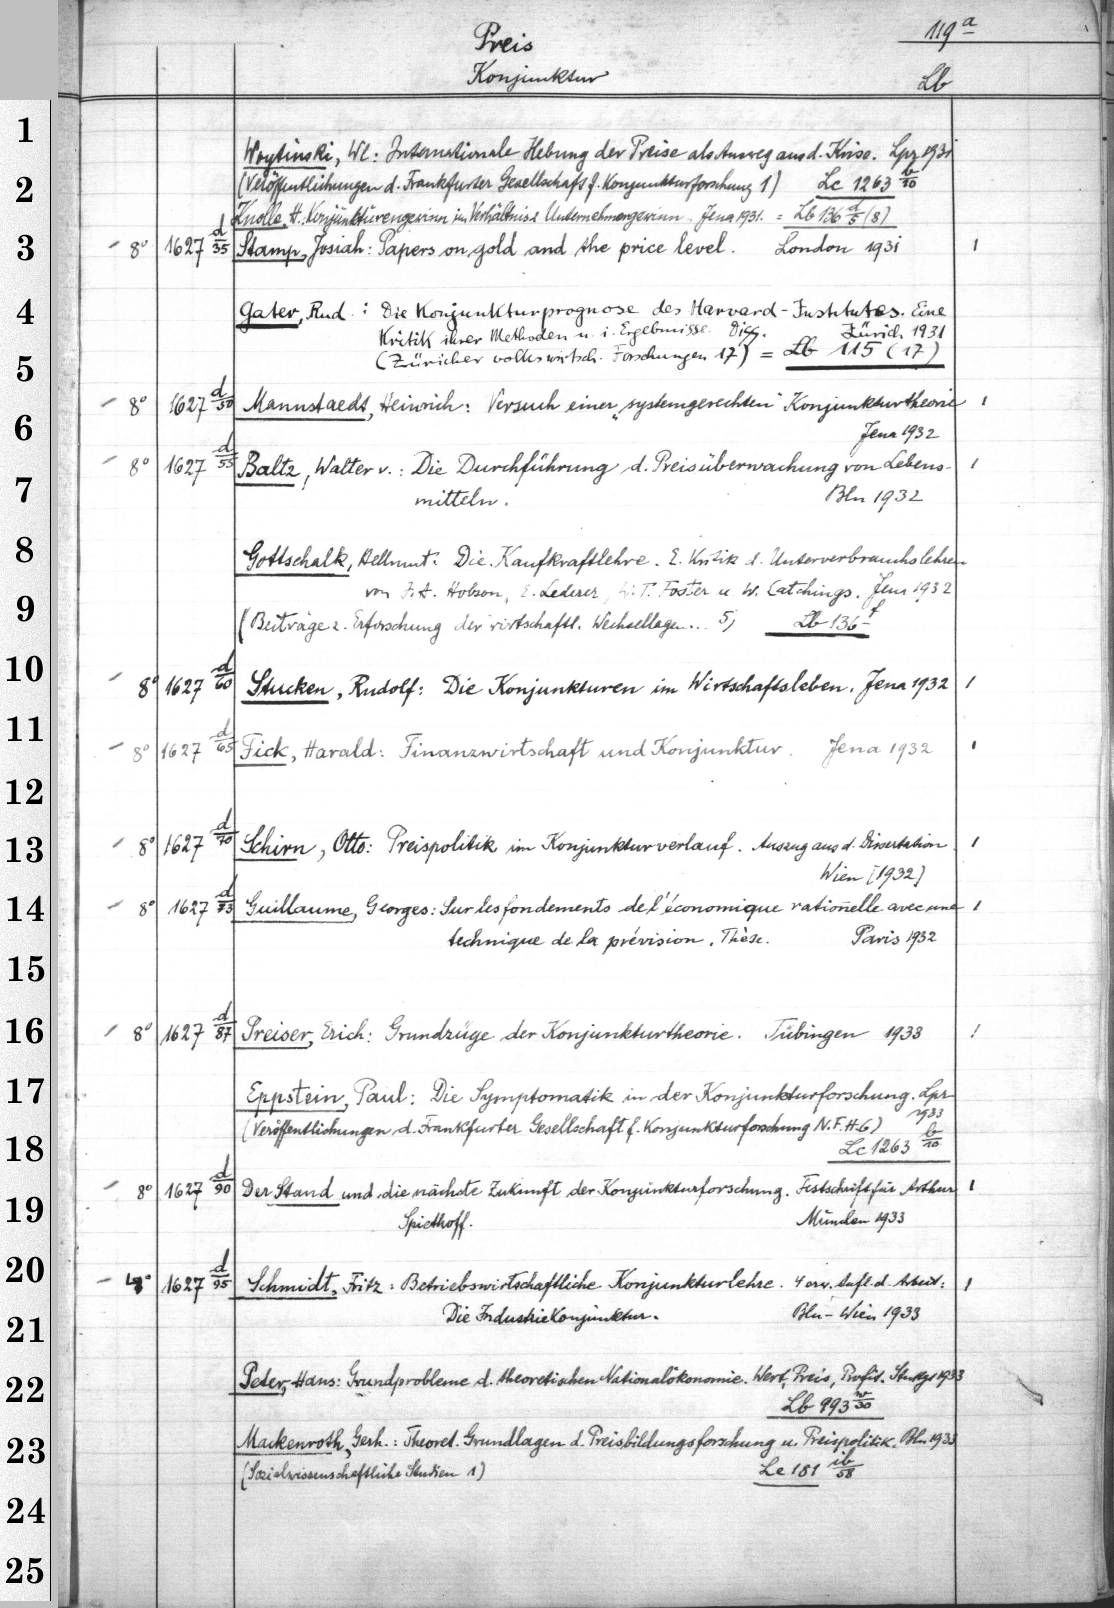 Preis
119a
Konjunktur
Lb
1
Woytinski, Wl: Internationale Hebung der Preise als Ausweg aus d. Krise. Lpz 1931
2
(Veröffentlichungen d. Frankfurter Gesellschaft f. Konjunkturforschung 1) Lc 1263 b/10
Knolle, H.: Konjunkturengewinn im Verhältnis z. Unternehmergewinn. Jena 1931. = Lb 136 d/5 (8)
3
8° 1627 d/35 Stamp, Josiah: Papers on gold and the price level. London 1931 1
4
Gater, Rud.: Die Konjunkturprognose des Harvard-Institutes. Eine
Kritik ihrer Methoden u. i. Ergebnisse. Diss. Zürich 1931
5
(Züricher volkswirtsch. Forschungen 17) = Lb 115 (17)
8° 1627 d/50 Mannstaedt, Heinrich: Versuch einer „systemgerechten" Konjunkturtheorie 1
6
Jena 1932
8° 1627 d/55 Baltz, Walter v.: Die Durchführung d. Preisüberwachung von Lebens- 1
7
mitteln. Bln 1932
8
Gottschalk, Hellmut: Die Kaufkraftlehre. E. Kritik d. Unterverbrauchslehren
9
von J. A. Hobson, E. Lederer, W. T. Foster u. W. Catchings. Jena 1932
(Beiträge z. Erforschung der wirtschaftl. Wechsellagen... 5) Lb 136 f
10
8° 1627 d/60 Stucken, Rudolf: Die Konjunkturen im Wirtschaftsleben. Jena 1932 1
11
8° 1627 d/65 Fick, Harald: Finanzwirtschaft und Konjunktur. Jena 1932 1
12
13
8° 1627 d/70 Schirn, Otto: Preispolitik im Konjunkturverlauf. Auszug aus d. Dissertation. 1
Wien [1932]
14
8° 1627 d/73 Guillaume, Georges: Sur les fondements de l'économique rationelle avec une 1
technique de la prévision. Thèse. Paris 1932
15
16
8° 1627 d/87 Preiser, Erich: Grundzüge der Konjunkturtheorie. Tübingen 1933 1
17
Eppstein, Paul: Die Symptomatik in der Konjunkturforschung. Lpz
1933
(Veröffentlichungen d. Frankfurter Gesellschaft f. Konjunkturforschung N.F. H. 6)
18
Lc 1263 b/10
8° 1627 d/90 Der Stand und die nächste Zukunft der Konjunkturforschung. Festschrift für Arthur 1
19
Spiethoff. München 1933
20
8° 1627 d/95 Schmidt, Fritz: Betriebswirtschaftliche Konjunkturlehre. 4 erw. Aufl. d. Arbeit: 1
Die Industriekonjunktur. Bln-Wien 1933
21
Peter, Hans: Grundprobleme d. theoretischen Nationalökonomie. Wert, Preis, Profit. Stuttg 1933
22
Lb 993 w/30
23
Mackenroth, Gerh.: Theoret. Grundlagen d. Preisbildungsforschung u. Preispolitik. Bln 1933
(Sozialwissenschaftliche Studien 1) Le 181 ib/58
24
25